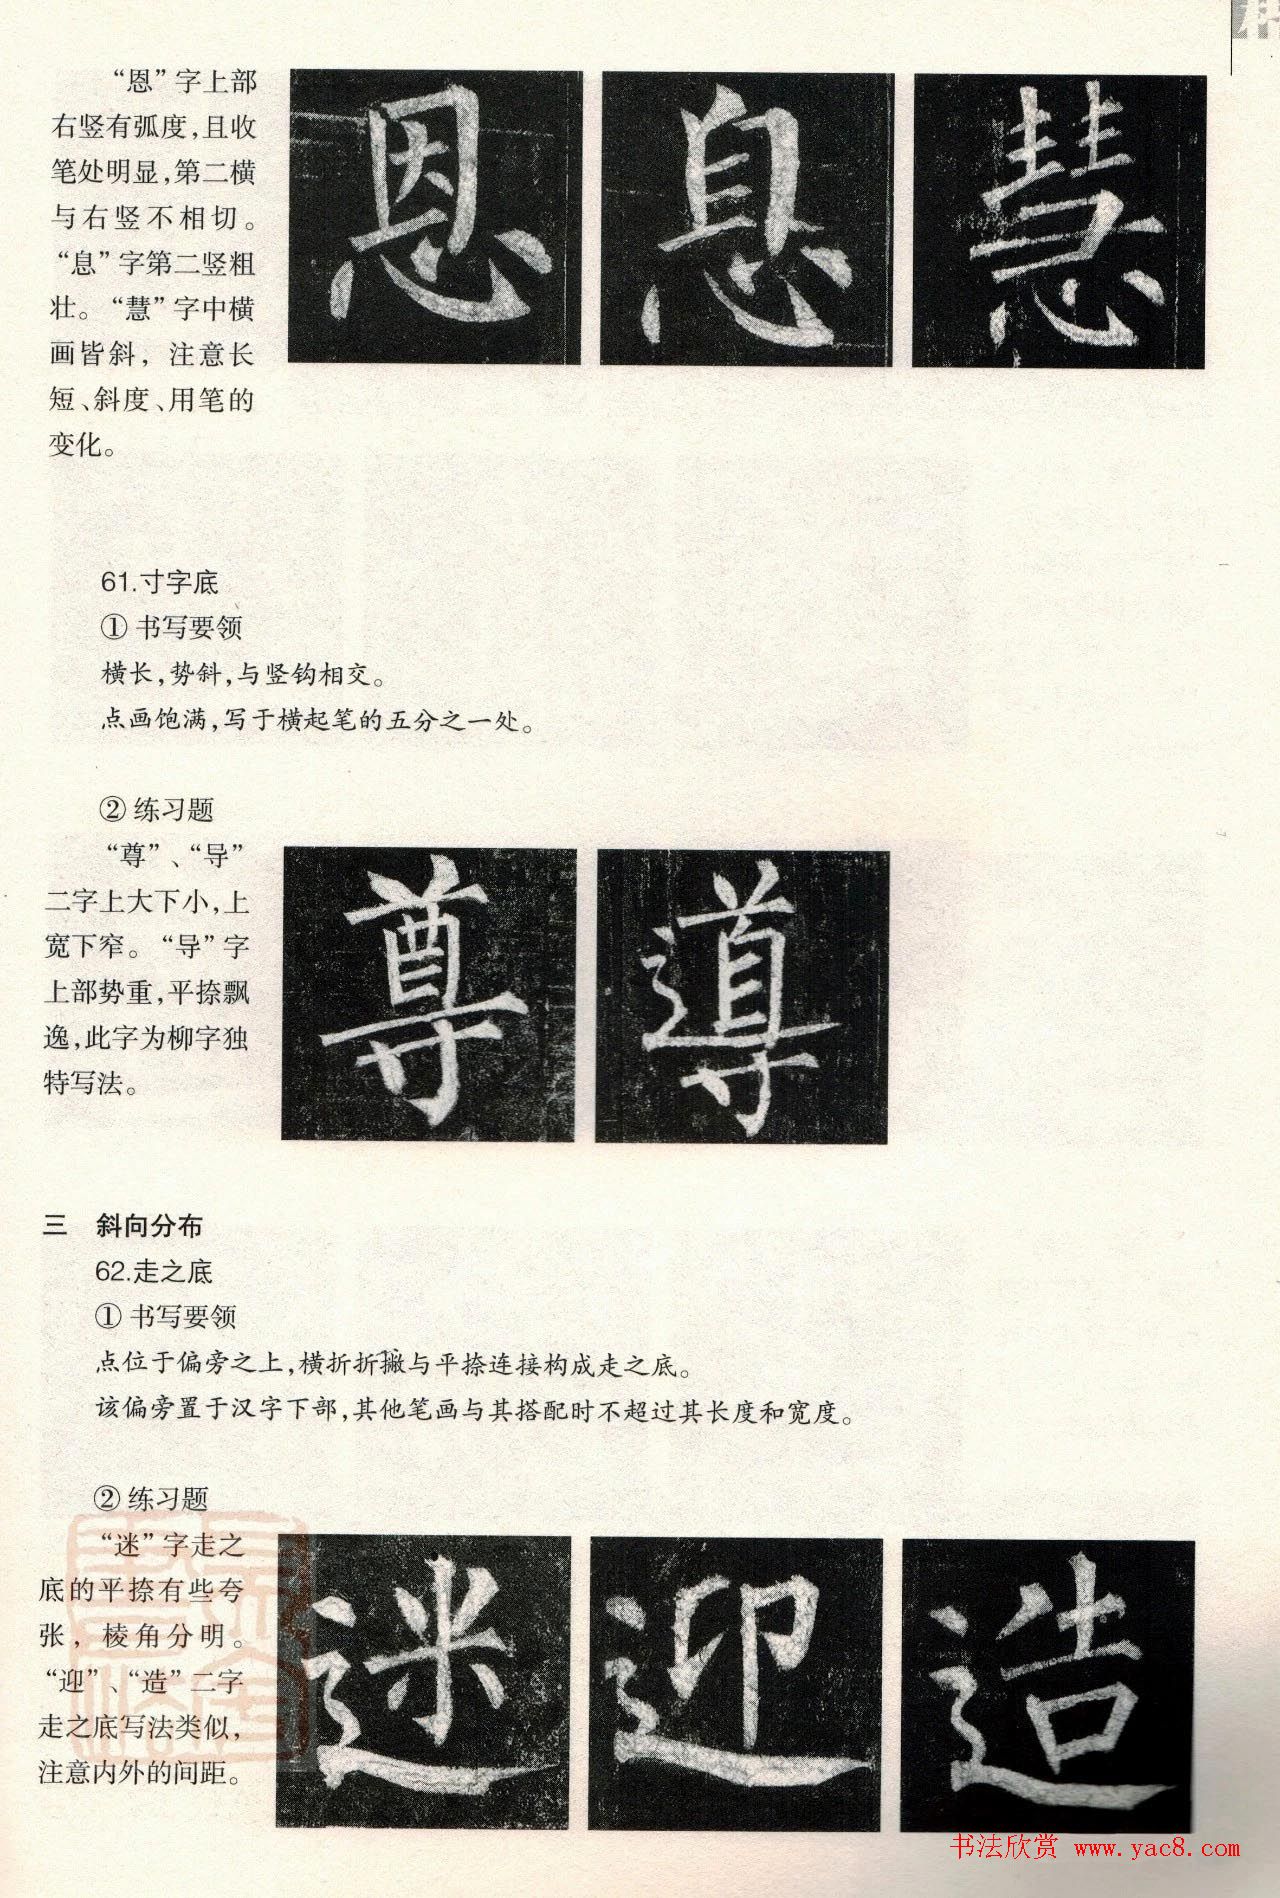 “恩”字上部
右竖有弧度，且收
笔处明显，第二横
与右竖不相切。
“息”字第二竖粗
壮。“慧”字中横
画皆斜，注意长
短、斜度、用笔的
变化。
恩 息 慧
61.寸字底
① 书写要领
横长，势斜，与竖钩相交。
点画饱满，写于横起笔的五分之一处。
② 练习题
“尊”、“导”
二字上大下小，上
宽下窄。“导”字
上部势重，平捺飘
逸，此字为柳字独
特写法。
尊 導
三 斜向分布
62.走之底
① 书写要领
点位于偏旁之上，横折折撇与平捺连接构成走之底。
该偏旁置于汉字下部，其他笔画与其搭配时不超过其长度和宽度。
② 练习题
“迷”字走之
底的平捺有些夸
张，棱角分明。
“迎”、“造”二字
走之底写法类似，
注意内外的间距。
迷 迎 造
书法欣赏 www.yac8.com